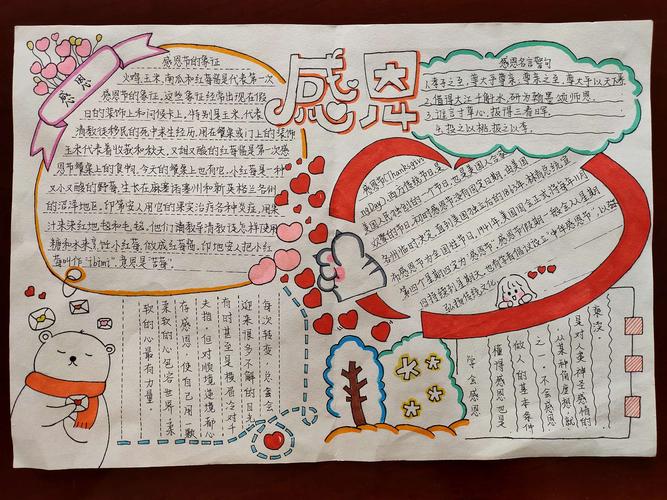 感恩
感恩
感恩节的象征
火鸡、玉米、南瓜和红莓酱是代表第一次
感恩节的象征。这些象征经常出现在假
日的装饰上和问候卡上。特别是玉米,代表
清教徒移民的死中求生经历。用在餐桌或门上的装饰
玉米代表着收获和秋天。又甜又酸的红莓是第一次感
恩节餐桌上的食物,今天的餐桌上也有它。小红莓是一种
又小又酸的野莓,生长在麻萨诸塞州和新英格兰各州
的沼泽地区。印第安人用它的果实治疗各种炎症,用果
汁来染红地毯和毛毯。他们清教导清教徒怎样使用
糖和水来煮小红莓,做成红莓酱。印地安人把小红
莓叫作"ibimi",意思是"苦莓"。
感恩名言警句
1.孝子之至,莫大乎尊亲,尊亲之至,莫大乎以天下养
2.借得大江千斛水,研为翰墨颂师恩。
3.谁言寸草心,报得三春晖。
4.投之以桃,报之以李。
感恩节(Thanksgivin
ng Day),西方传统节日,是
美国人民独创的一个节日,也是美国人合家
欢聚的节日。初时感恩节没有固定日期,由美国
各州临时决定。直到美国独立后的1863年,林肯总统宣
布感恩节为全国性节日。1941年,美国国会正式将每年11月
第四个星期四定为"感恩节"。感恩节假期一般会从星期
四持续到星期天。
每次转变,总会会
迎来很多不解的目光
有时甚至是横眉冷对千
夫指,但对顺境逆境都心
存感恩,使自己用一颗
柔软的心包容世界。柔
软的心最有力量
是对人类神圣感情的
从某种角度想,就
之一。不会感恩
做人的基本条件
懂得感恩也是
学会感恩